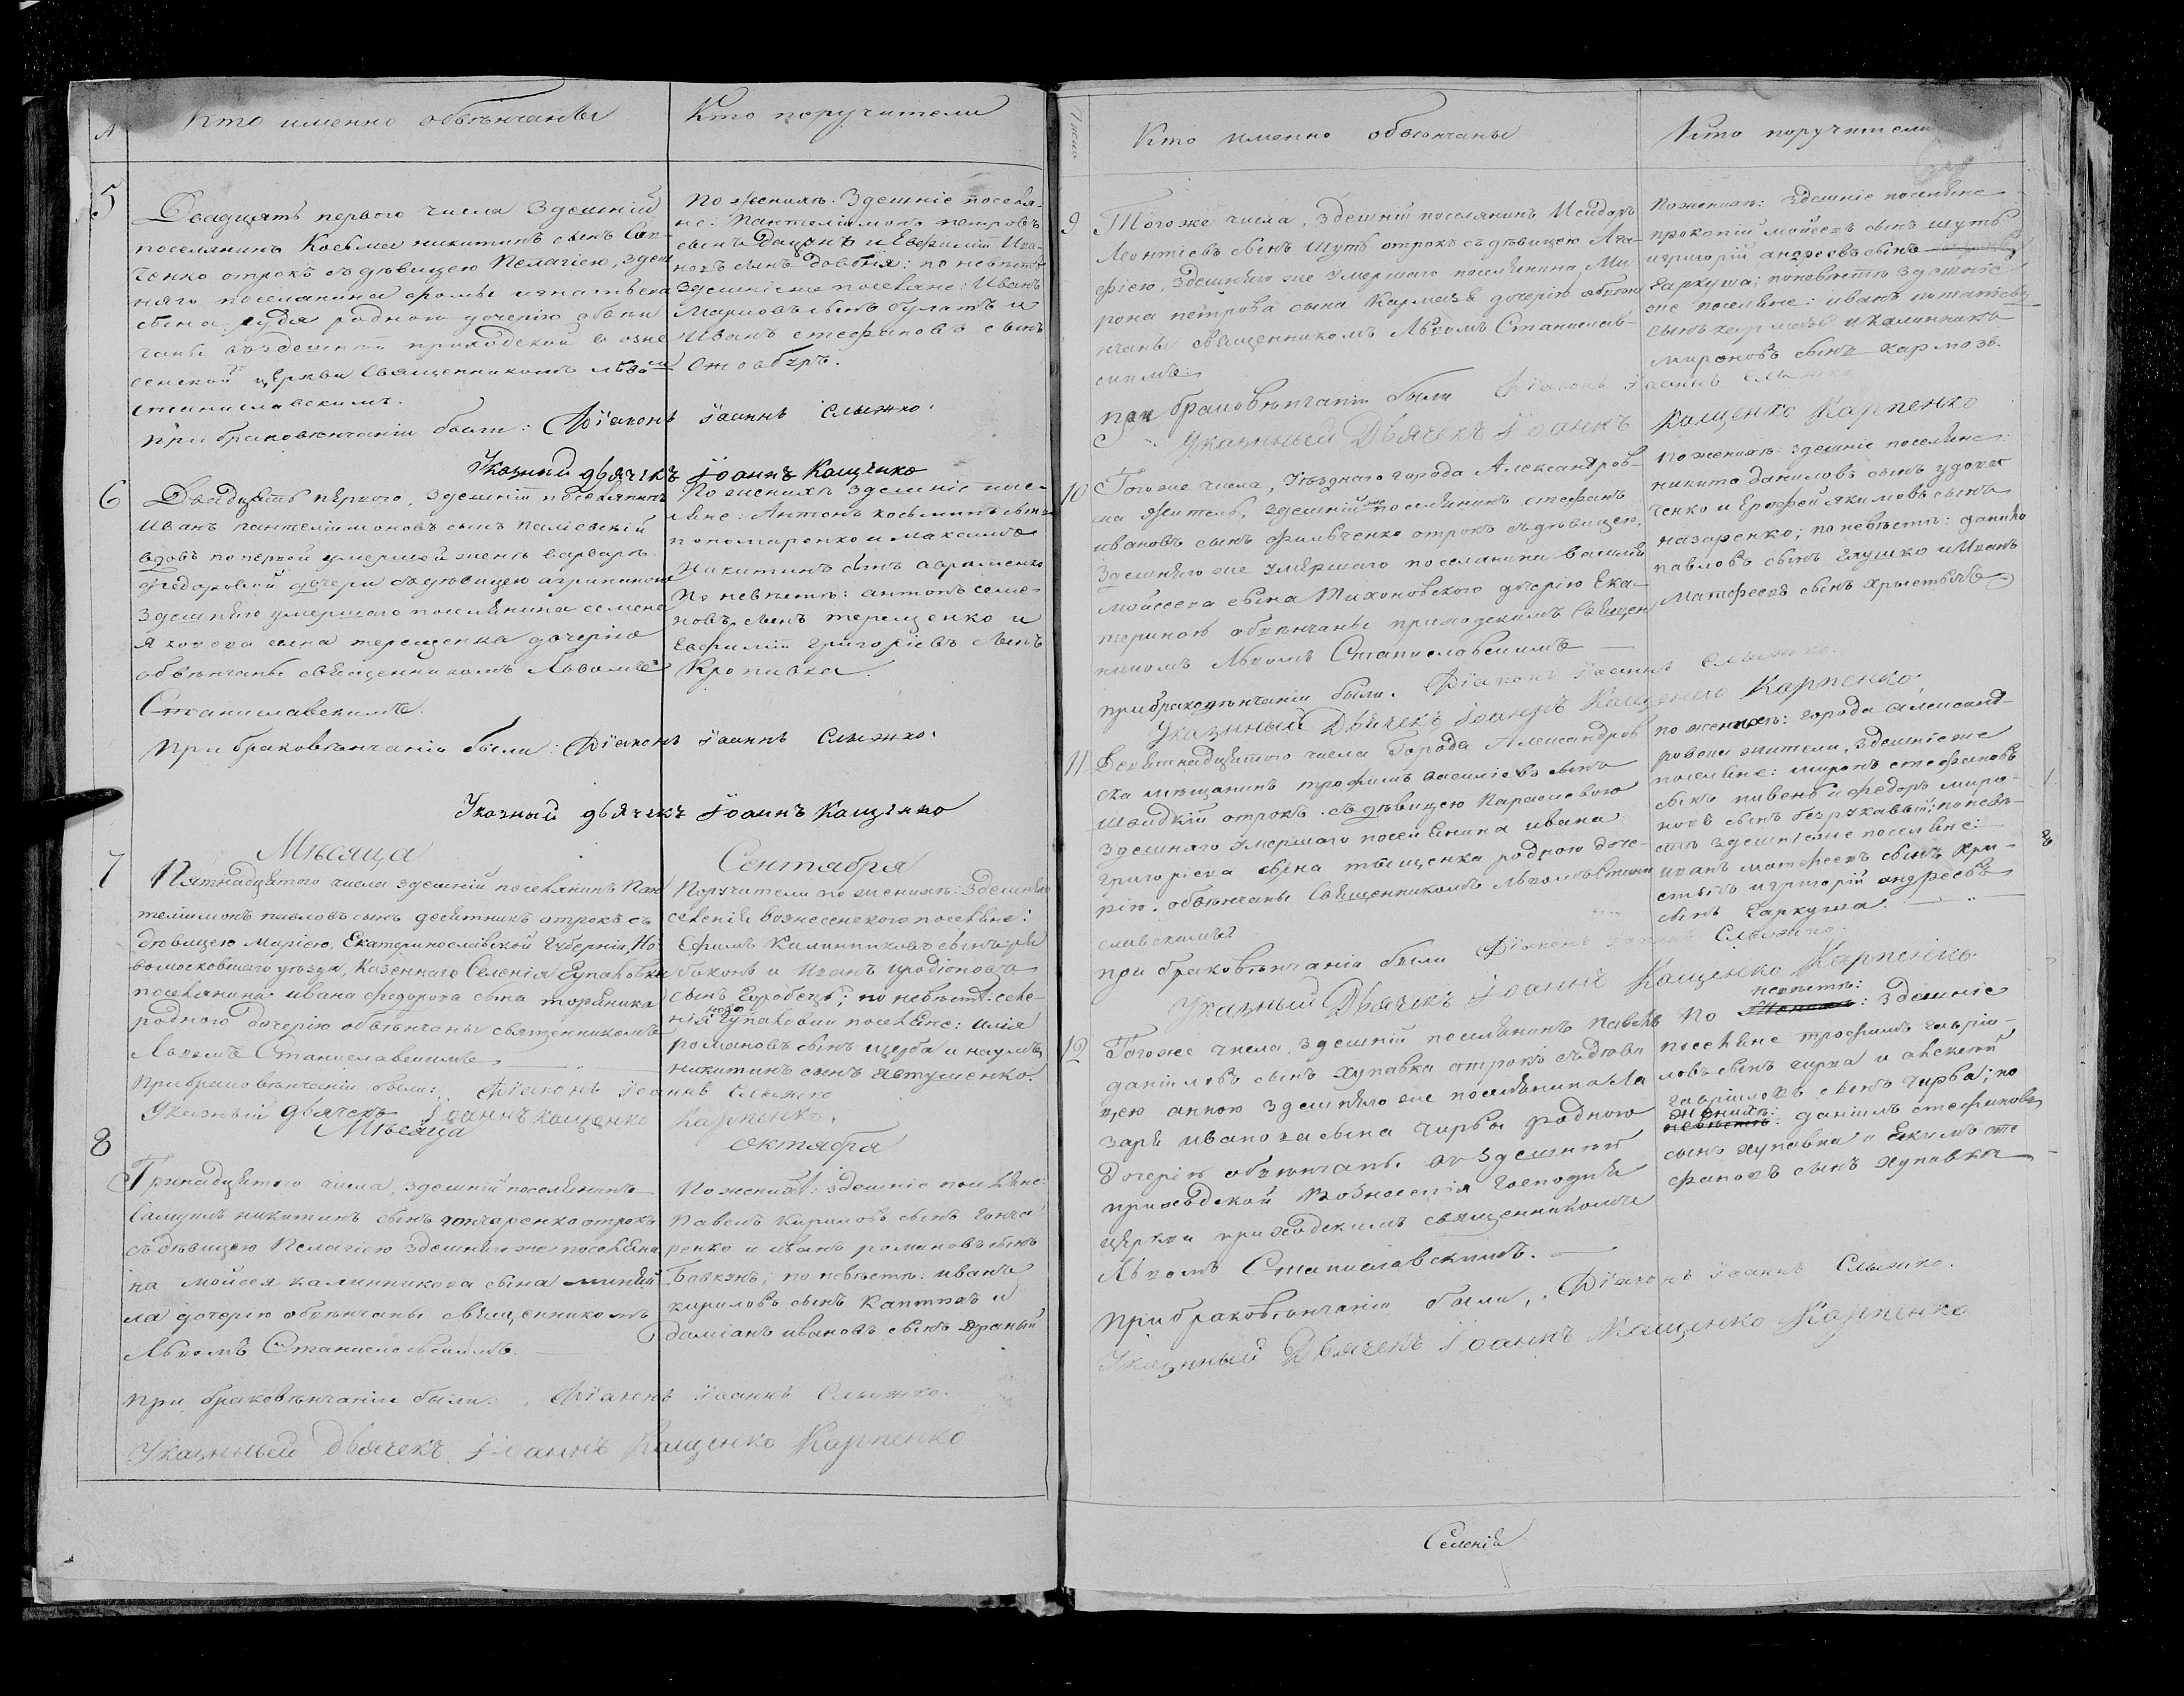 Кто именно обвѣнчаны
Кто поручители
5
Двадцать первого числа здешній
поселянинъ Косьма никитинъ сынъ
ченко отрокъ съ дѣвицею Пелагіею, здеш
няго поселянина фомы игнатьева
сына родною дочерію обвѣн
чаны въ здешней приходской возне
сенской церкви Священникомъ Львомъ
станиславскимъ.
При браковѣнчаніи были: Діаконъ Іоаннъ Слыжко.
Указный дьячекъ Іоаннъ Кащенко
По женихѣ: Здешніе поселя-
не: Пантелімонъ петровъ
сынъ и Евфимій Ива-
новъ сынъ довбня: по невѣстѣ
здешніе же поселяне: Иванъ
сынъ булатъ и
Иванъ стефановъ сынъ
6
Двадцать первого, здешній поселянинъ
Иванъ пантеліимоновъ сынъ Паліевскій
вдовъ по первой умершей женѣ варварѣ
Федоровой дочери съ дѣвицею агрипиною
здешнего умершаго поселянина семена
Яковева сына терещенка дочерію
обвѣнчаны священникомъ Львомъ
Станиславскимъ.
При браковѣнчаніи были: Діаконъ Іоаннъ Слыжко.
Указный дьячекъ Іоаннъ Кащенко
По женихѣ здешніе посе-
ляне: Антонъ косьминъ сынъ
пономаренко и Максимъ
Никитинъ сынъ авраменко
По невѣстѣ: антонъ семе-
новъ сынъ терещенко и
Евфимій григоріевъ сынъ
Кропивка.
Мѣсяца Сентября
7
Пятнадцятого числа здешній поселянинъ Пан
теліимонъ павловъ сынъ десятникъ отрокъ съ
дѣвицею Маріею, Екатеринославской Губерніи, Но-
вомосковшаго уезда, Казеннаго Селенія Гупаловки
поселянина ивана федорова сына торяника
родною дочерію обвѣнчаны священникомъ
Львомъ Станиславскимъ
При браковѣнчаніи были: Діаконъ Іоаннъ Слыжко
Указный дьячекъ Іоаннъ Кащенко Карпенко.
Поручители по женихѣ: Здешнего
селенія вознесенского поселяне:
Ефимъ Калинниковъ сынъ
и Иванъ иродіоновъ
сынъ Горобецъ; по невѣстѣ: селе-
нія Гупаловки поселяне: илія
романовъ сынъ щерба и наумъ
никитинъ сынъ Явтушенко.
Мѣсяца октября
8
Тринадцятого числа, здешній поселянинъ
Самуилъ никитинъ сынъ гончаренко отрокъ
съ дѣвицею Пелагіею здешнего же поселяни
на мойсея калинникова сына
ла дочерію обвѣнчаны священникомъ
Львомъ Станиславскимъ.
При браковѣнчаніи были: Діаконъ Іоаннъ Слыжко.
Указнный Дьячекъ Іоаннъ Кащенко Карпенко
По женихѣ: здешніе поселяне:
Павелъ Кириловъ сынъ гонча
ренко и иванъ романовъ сынъ
Бовкунъ; по невѣстѣ: иванъ
кириловъ сынъ Каптяхъ и
даміанъ ивановъ сынъ драный
Число
Кто именно обвѣнчаны
Кто поручители
9
Того же числа, здешній поселянинъ Исидоръ
Леонтіевъ сынъ Шутъ отрокъ съ дѣвицею Ага-
фіею, здешняго же умершаго поселянина, Ми
рона петрова сына Кармазя дочерію обвѣн
чаны священникомъ Львомъ Станислав-
скимъ:
При браковѣнчаніи были Діаконъ Іоаннъ Слыжко
Указнный Дьячекъ Іоаннъ Кащенко Карпенко
По женихѣ: здешніе поселяне
прокопій мойсеевъ сынъ шутъ
и григорій андреевъ сынъ
Гаркуша; по невѣстѣ здешніе
же поселяне: иванъ потапіевъ
сынъ кармазъ и калинникъ
мироновъ сынъ кармазъ.
10
Того же числа, уезднаго города Александров-
ска житель, здешній же поселянинъ стефанъ
ивановъ сынъ фильченко отрокъ съ дѣвицею,
здешнего же умершаго поселянина василія
мойсеева сына Тихоновского дочерію Ека-
териною обвѣнчаны приходскимъ Священ
никомъ Львомъ Станиславскимъ
При браковѣнчаніи были. Діаконъ Іоаннъ Слыжко.
Указнный Дьячекъ Іоаннъ Кащенко Карпенко.
По женихѣ: здешніе поселяне:
никита даниловъ сынъ удовен
ченко и Ерофей якимовъ сынъ
назаренко; по невѣстѣ: данило
павловъ сынъ глушко и Иванъ
Матфеевъ сынъ христычъ
11
Девятнадцятого числа Города Александров
ска мѣщанинъ трофимъ василіевъ сынъ
Швидкій отрокъ съ дѣвицею Параскевою
здешняго умершаго поселянина ивана
григоріева сына тыщенка родною доче-
рію. обвѣнчаны Священникомъ Львомъ Стани
славскимъ
При браковѣнчаніи были Діаконъ Іоаннъ Слыжко.
Указнный Дьячекъ Іоаннъ Кащенко Карпенко.
по женихѣ: города Александ-
ровска жители, здешніе же
поселяне: миронъ стефановъ
сынъ пивень и федоръ миро-
новъ сынъ безрукавый; по невѣ-
стѣ здешніе же поселяне:
иванъ матфеевъ сынъ хри-
стычъ и григорій андреевъ
сынъ Гаркуша.
12
Того же числа, здешній поселянинъ Павелъ
даніиловъ сынъ хупавка отрокъ съ дѣви
цею анною здешнего же поселянина Ла
заря иванова сына чирвы родною
дочерію обвѣнчаны въ здешней
приходской Вознесенія Господня
Церкви приходскимъ священникомъ
Львомъ Станиславскимъ.
При браковѣнчаніи были, Діаконъ Іоаннъ Слыжко.
Указнный Дьячекъ Іоаннъ Кащенко Карпенко
невѣстѣ:
По женихѣ: здешніе
поселяне трофимъ гавріи-
ловъ сынъ чирва и алексѣй
гавріиловъ сынъ чирва; по
женихѣ:
невѣстѣ: даніилъ стефановъ
сынъ хупавка и Екимъ сте
фановъ сынъ хупавка
Селенія